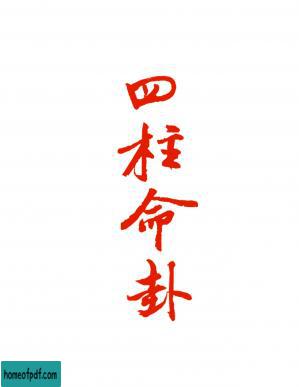 四柱命卦
homeofpdf.com